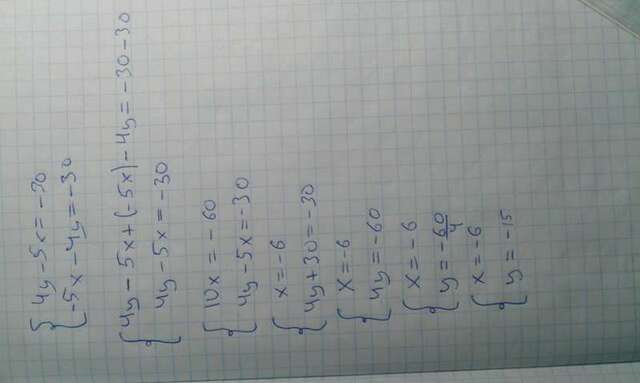 4y-5x=-30
-5x-4y=-30
4y-5x+(-5x)-4y=-30-30
4y-5x=-30
10x=-60
4y-5x=-30
x=-6
4y+30=-30
x=-6
4y=-60
x=-6
y=-60/4
x=-6
y=-15